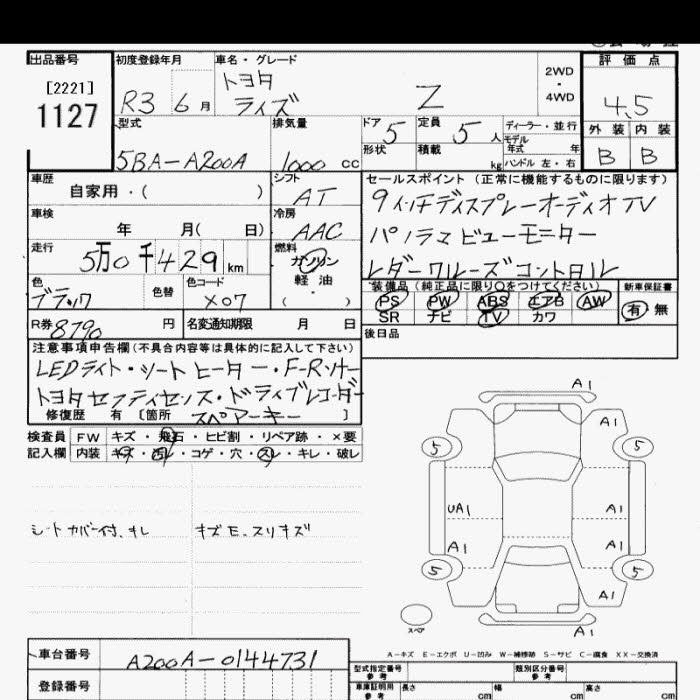 出品番号 初度登録年月 車名・グレード 評価点
[2221]
1127
R3 6月
トヨタ
ライズ
Z
2WD
・
4WD
4.5
外装 内装
B B
型式 排気量 ドア 5 定員 5人 ディーラー・並行
5BA-A200A 1000 cc
形状 積載 kg
モデル年式 年
ハンドル 左・右
車歴 自家用・( )
シフト AT
車検 年 月( 日)
冷房 AAC
走行 5万0千429km
燃料 ガソリン
軽油
・
( )
色 ブラック 色替 色コード X07
R券 8790 円 名変通知期限 月 日
セールスポイント (正常に機能するものに限ります)
9インチディスプレーオーディオTV
パノラマビューモニター
レダークルーズコントロル
装備品 (純正品に限り○をつけてください) 新車保証書
PS PW ABS エアB AW
SR ナビ TV カワ
有・無
後日品
注意事項申告欄 (不具合内容等は具体的に記入して下さい)
LEDライト・シートヒーター・F-Rソナー
トヨタセフティセンス・ドライブレコーダー
修復歴 有 [箇所 スペアーキー ]
検査員 FW キズ・飛石・ヒビ割・リペア跡・×要
記入欄 内装 キズ・凹・コゲ・穴・スレ・キレ・破レ
シートカバー付、キレ
キズE、スリキズ
A1
A1
5 5
UA1 A1
A1 A1
5 5
A1
スペア
A1
A-キズ E-エクボ U-凹み W-補修跡 S-サビ C-腐食 XX-交換済
車台番号 A200A-0144731
登録番号
型式指定番号 参考 類別区分番号 参考
車庫証明用 参考 長さ cm 幅 cm 高さ cm